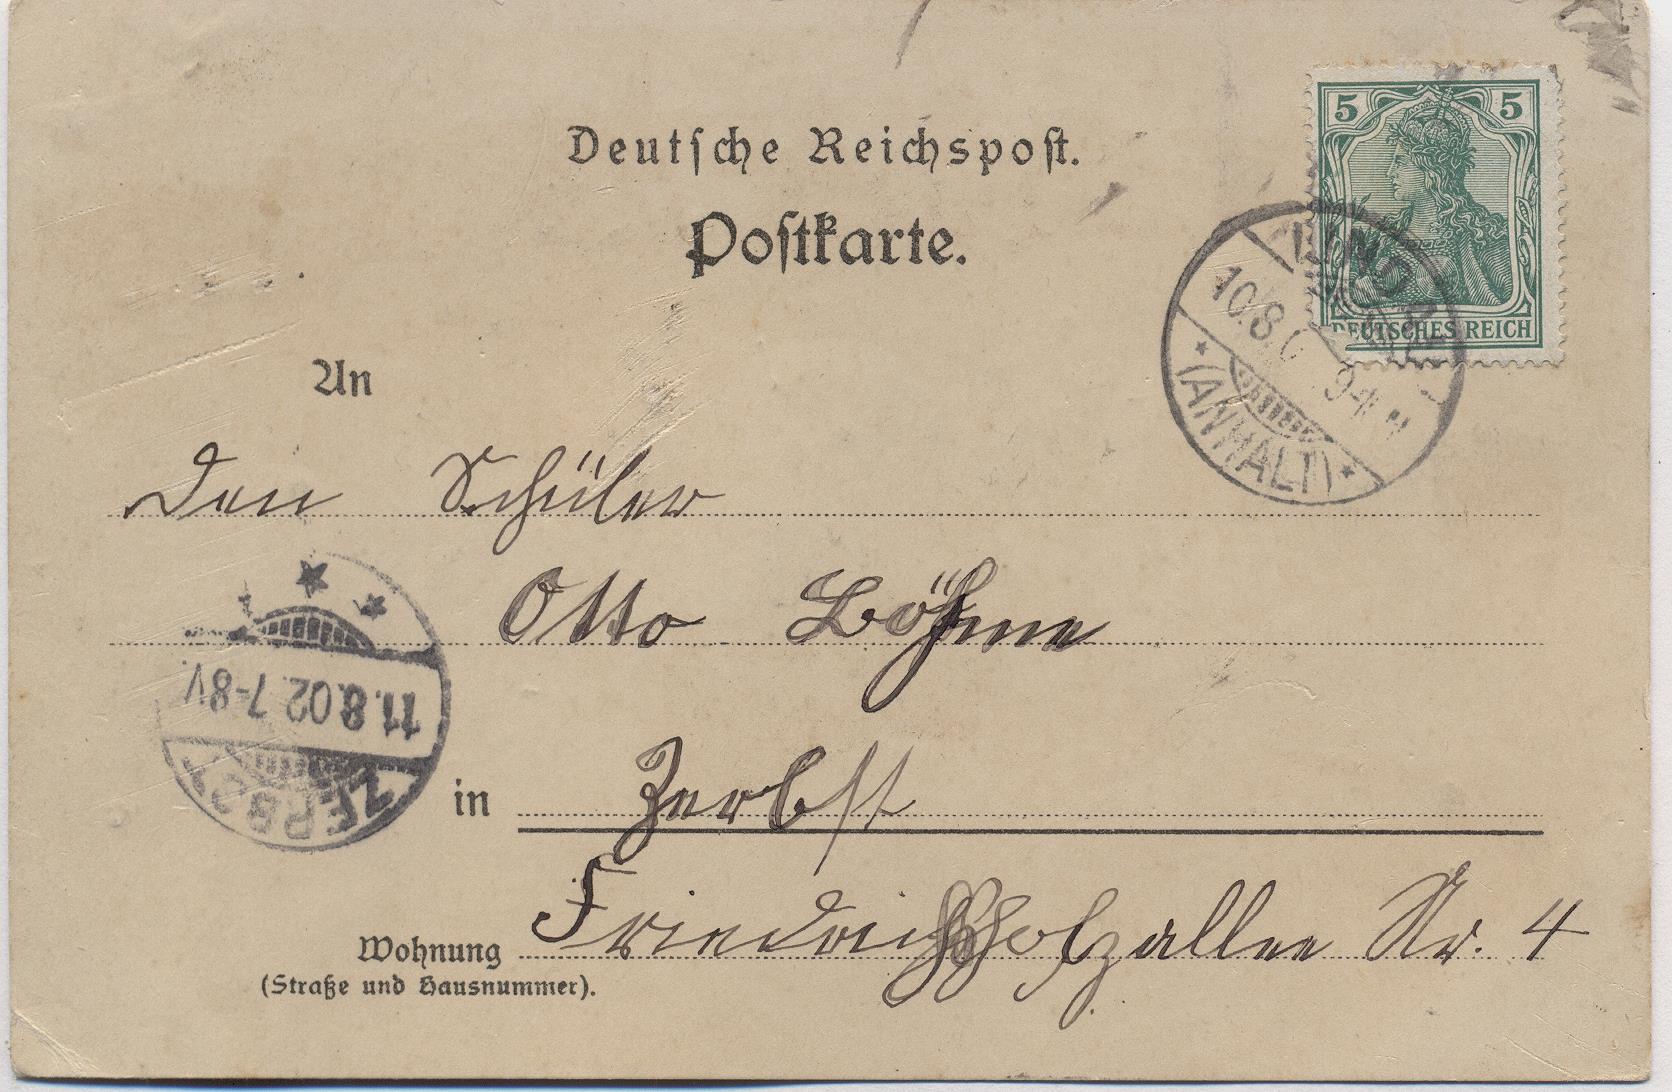 Deutsche Reichspost.
Postkarte.
5 5
DEUTSCHES REICH
LINDAU
10.8.0 9-
* (ANHALT) *
An
Den Schüler
Otto Böhme
11.8.02. 7-8V.
ZERBST
in Zerbst
Wohnung Friedrichsholzallee Nr. 4
(Straße und Hausnummer).